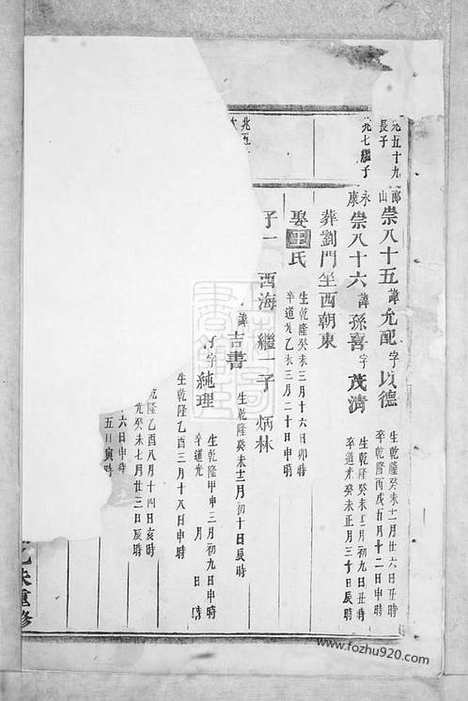 允五十九郎山崇八十五諱允配字以德生乾隆癸未十二月廿六日丑時
長子卒乾隆丙戌五月十二日申時
允七繼子永康崇八十六諱孫喜字茂清生乾隆癸未十二月初九日丑時
卒道光癸未正月三十日辰時
葬劉門坐西朝東
娶王氏生乾隆癸未三月十六日卯時
卒道光乙未三月二十日申時
子一西海繼一子炳林
北五
諱吉書生乾隆癸未十二月初十日辰時
字純理生乾隆甲申三月初九日申時
卒道光月日時
生乾隆乙酉三月十八日申時
乾隆乙酉八月十四日亥時
光癸未七月廿三日辰時
六日申時
五日寅時
乙未重修
www.fozhu920.com